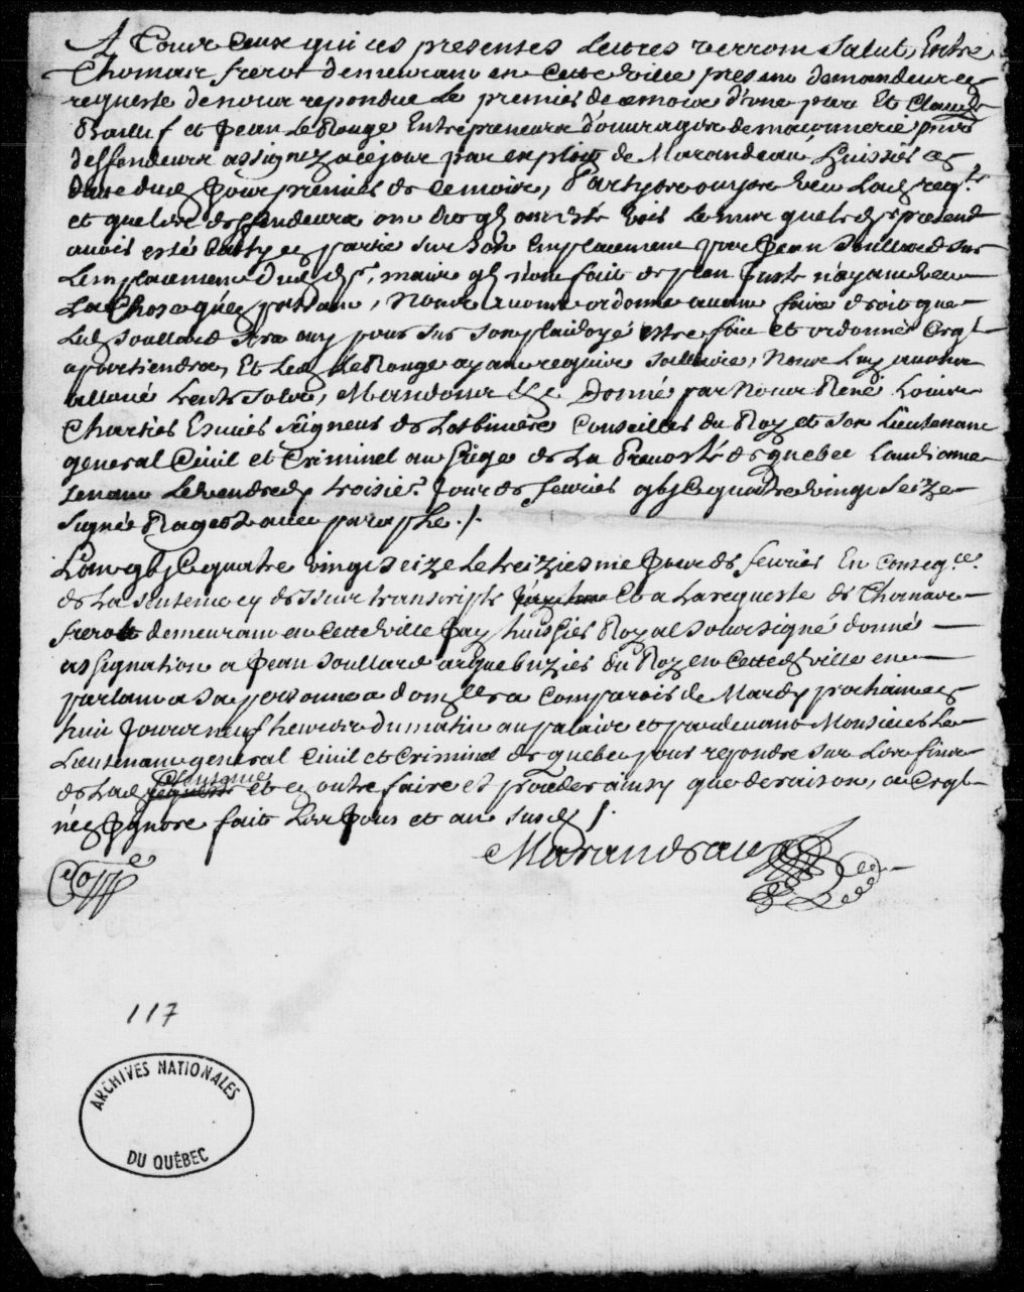 A Tous Ceux qui ces presentes Lettres verront Salut, Entre
Thomas frerot demeurant en Cette ville present demandeur en
requeste de nous repondue Le premier de ce mois d'une part Et Claude
Baillif et Jean Le Rouge Entrepreneurs d'ouvrages de maconnerie
deffendeurs assignez a ce jour par exploit de Marandeau huissier en
datte dud. Jour premier de ce mois, Partyes ouyes veu Lad. reqte
et que les deffendeurs ont dit qu'ils ont esté vois le mur que led. sr pretend
avoir esté basty en partie sur son Emplacement par Jean Soullard sur
L'emplacement dud. sr, mais qu'ils n'ont fait de plan Juste n'ayant veu
La Chose qu'en passant, Nous avons ordonné avant faire droit que
Led. Soullard sera ouy pour sur son plaidoyé estre fait et ordonné Ce qu'il
apartiendra, Et Led. Le Rouge ayant requis sallaire, Nous Luy avons
alloué trente solz, Mandons &c Donné par Nous René Louis
Chartier Escuier Seigneur de Lotbiniere Conseiller du Roy et son Lieutenant
general Civil et Criminel au siege de La Prevosté de quebec L'audiance
tenant Le vendredy troisier. Jour de fevrier gbjC quatre vingt Seize
Signé Rageot avec paraphe ./.
L'an gbjC quatre vingt seize le treiziesme Jour de fevrier En conseqce
de La sentence cy dessus transcripte Et a La requeste de Thomas
frerot demeurant en Cette ville Jay huissier Royal Soussigné donné
assignation a Jean Soullard arquebuzier du Roy en Cetted. ville en
parlant a sa personne a domlle a Comparoir de Mardy prochain en
huit Jours neuf heures du matin au palais et pardevant Monsieur Le
Lieutenant general Civil et Criminel de quebec pour repondre sur Les fins
de Lad. sentence et en outre faire et proceder ainsy que de raison, a Ce qu'il
n'en Ignore fait Les Jour et an susd. /.
Marandeau
117
ARCHIVES NATIONALES
DU QUÉBEC